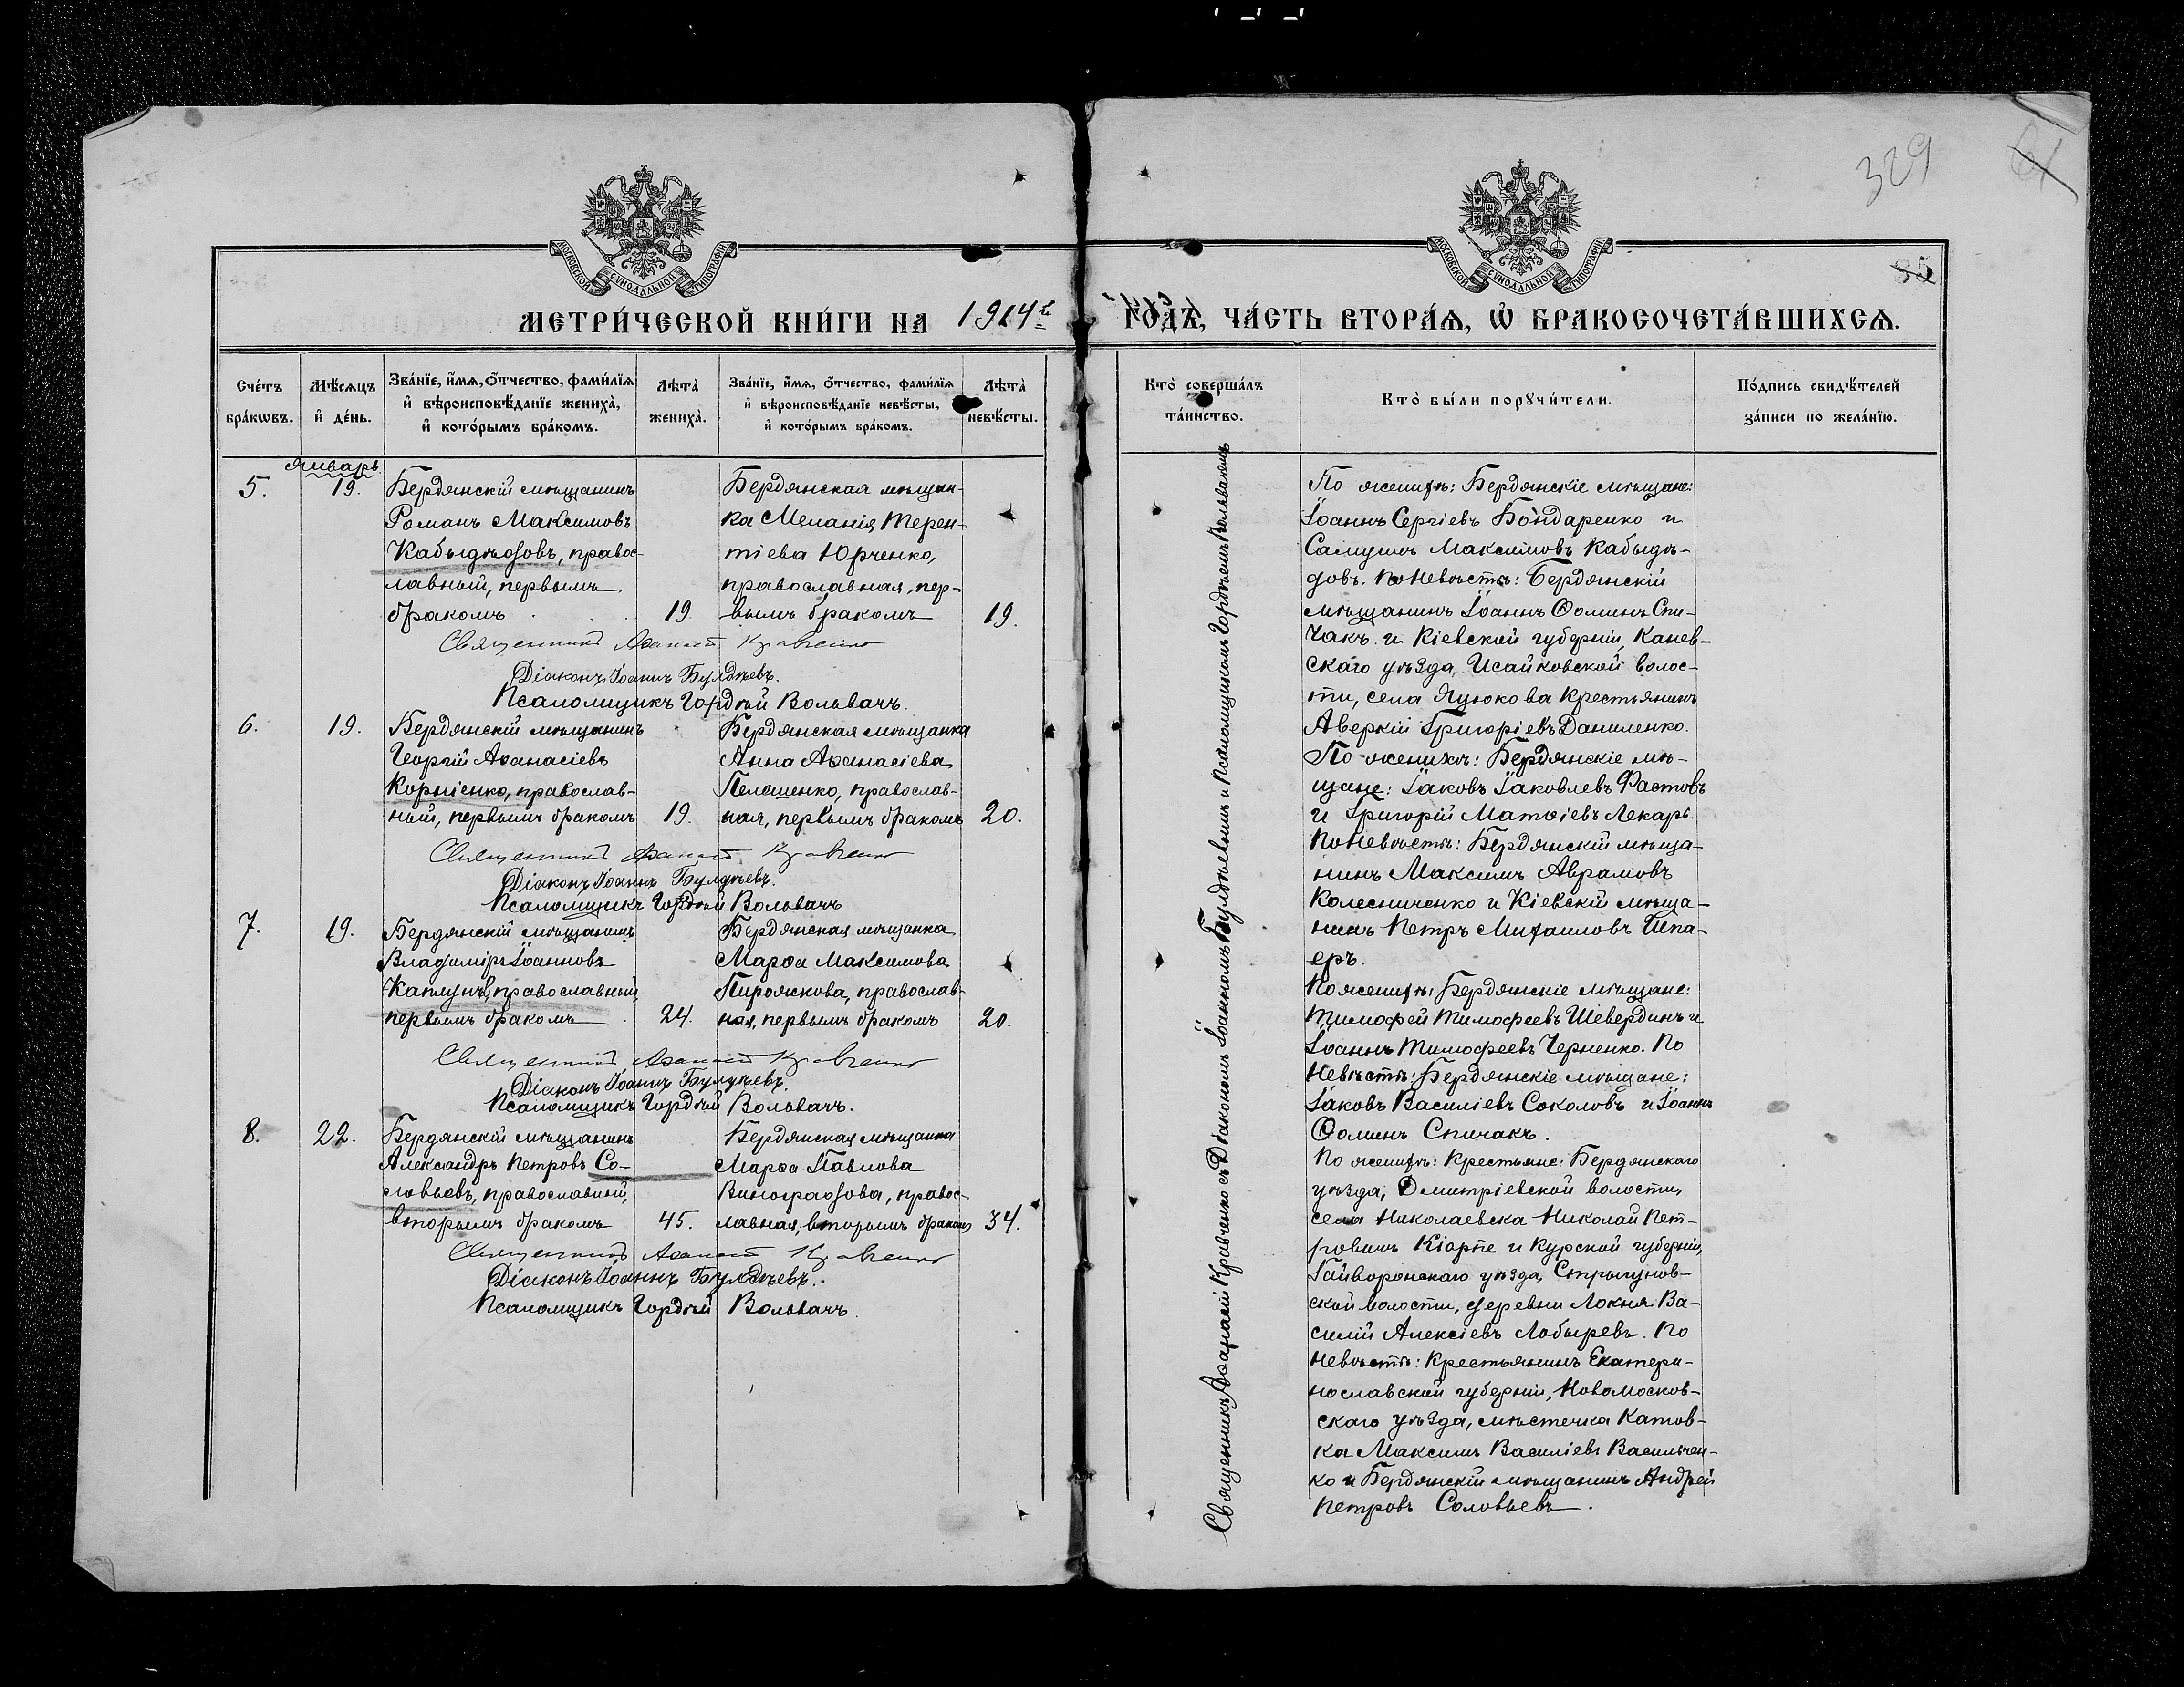 329
85
МОСКОВСКОЙ СѴНОДАЛЬНОЙ ТИПОГРАФІИ
МОСКОВСКОЙ СѴНОДАЛЬНОЙ ТИПОГРАФІИ
МЕТРИ́ЧЕСКОЙ КНИ́ГИ НА 1914й ГОДЪ, ЧА́СТЬ ВТОРА́Ѧ, Ѡ҆ БРАКОСОЧЕТА́ВШИХСѦ.
Сче́тъ бра́кѡвъ.
Мѣ́сѧцъ и҆ де́нь.
Зва́нїе, и҆́мѧ, ѻ҆́тчество, фами́лїѧ
и҆ вѣроисповѣ́данїе жениха̀,
и҆ кото́рымъ бра́комъ.
Лѣта̀ жениха̀.
Зва́нїе, и҆́мѧ, ѻ҆́тчество, фами́лїѧ
и҆ вѣроисповѣ́данїе невѣ́сты,
и҆ кото́рымъ бра́комъ.
Лѣта̀ невѣ́сты.
Кто̀ соверша́лъ
та́инство.
Кто̀ бы́ли порꙋчи́тели.
По́дпись свидѣ́телей
за́писи по жела́нїю.
Январь
5.
19.
Бердянскій мѣщанинъ
Романъ Максимовъ
Кабыдѣдовъ, правос-
лавный, первымъ
бракомъ
19.
Бердянская мѣщан-
ка Меланія Терен-
тіева Юрченко,
православная, пер-
вымъ бракомъ
19.
Священникъ Аѳанасій Кравченко
Діаконъ Іоаннъ Булдѣевъ.
Псаломщикъ Гордѣй Вольвачъ.
6.
19.
Бердянскій мѣщанинъ
Георгій Аѳанасіевъ
Корніенко, православ-
ный, первымъ бракомъ
19.
Бердянская мѣщанка
Анна Аѳанасіева
Пелашенко, православ-
ная, первымъ бракомъ
20.
Священникъ Аѳанасій Кравченко
Діаконъ Іоаннъ Булдѣевъ.
Псаломщикъ Гордѣй Вольвачъ
7.
19.
Бердянскій мѣщанинъ
Владиміръ Іоанновъ
Каплунъ, православный,
первымъ бракомъ
24.
Бердянская мѣщанка
Марѳа Максимова
Пирожкова, православ-
ная, первымъ бракомъ
20.
Священникъ Аѳанасій Кравченко
Діаконъ Іоаннъ Булдѣевъ.
Псаломщикъ Гордѣй Вольвачъ.
8.
22.
Бердянскій мѣщанинъ
Александръ Петровъ Со-
ловьевъ, православный,
вторымъ бракомъ
45.
Бердянская мѣщанка
Марѳа Павлова
Виноградова, правос-
лавная, вторымъ бракомъ
34.
Священникъ Аѳанасій Кравченко
Діаконъ Іоаннъ Булдѣевъ.
Псаломщикъ Гордѣй Вольвачъ.
Священникъ Аѳанасій Кравченко съ Діакономъ Іоанномъ Булдѣевымъ и Псаломщикомъ Гордѣемъ Вольвачомъ
По женихѣ: Бердянскіе мѣщане:
Іоаннъ Сергіевъ Бондаренко и
Самуилъ Максимовъ Кабыдѣ-
довъ. По невѣстѣ: Бердянскій
мѣщанинъ Іоаннъ Ѳоминъ Спи-
чакъ и Кіевской губерніи, Канев-
скаго уѣзда, Исайковской волос-
ти, села Яцюкова крестьянинъ
Аверкій Григоріевъ Даниленко.
По женихѣ: Бердянскіе мѣ-
щане: Іаковъ Іаковлевъ Фастовъ
и Григорій Матѳіевъ Лекарь.
По невѣстѣ: Бердянскій мѣща-
нинъ Максимъ Аврамовъ
Колесниченко и Кіевскій мѣща-
нинъ Петръ Михаиловъ Шпа-
еръ.
По женихѣ: Бердянскіе мѣщане:
Тимофей Тимофеевъ Шевердинъ и
Іоаннъ Тимофеевъ Черненко. По
невѣстѣ: Бердянскіе мѣщане:
Іаковъ Василіевъ Соколовъ и Іоаннъ
Ѳоминъ Спичакъ.
По женихѣ: Крестьяне: Бердянскаго
уѣзда, Дмитріевской волости,
села Николаевска Николай Пет-
ровичъ Кіарпе и Курской губерніи,
Гайворонскаго уѣзда, Стригунов-
ской волости, деревни Локня Ва-
силій Алексіевъ Лобыревъ. По
невѣстѣ: Крестьянинъ Екатери-
нославской губерніи, Новомосков-
скаго уѣзда, мѣстечка Катов-
ка Максимъ Василіевъ Васильчен-
ко и Бердянскій мѣщанинъ Андрей
Петровъ Соловьевъ.